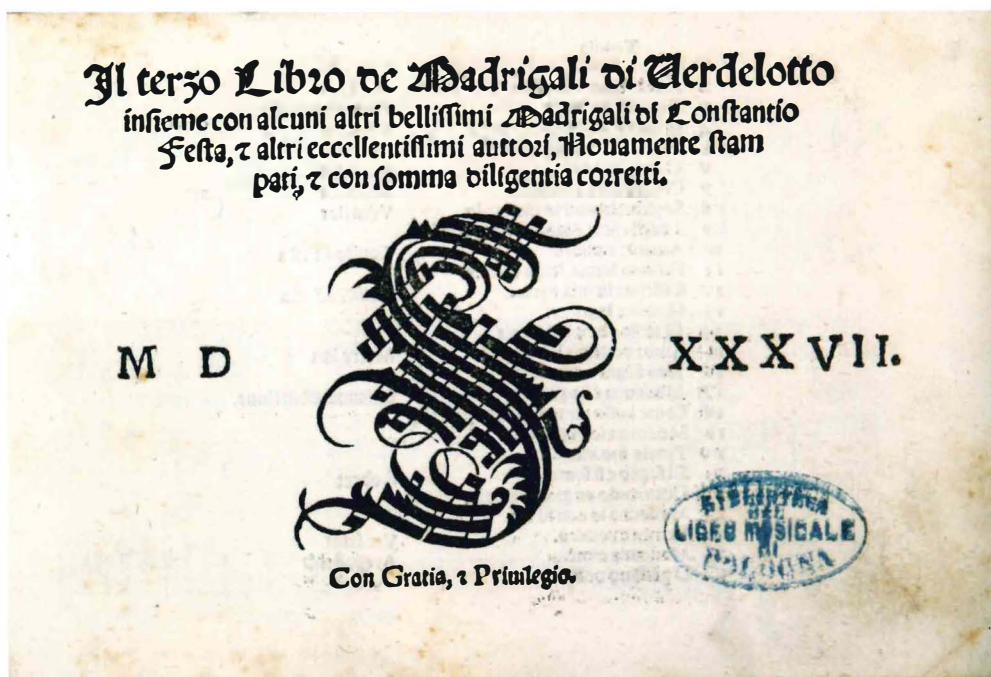 Il terzo Libro de Madrigali di Verdelotto
insieme con alcuni altri bellissimi Madrigali di Constantio
Festa, ⁊ altri eccellentissimi auttori, Nouamente stam
pati, ⁊ con somma diligentia corretti.
M D XXXVII.
Con Gratia, ⁊ Priuilegio.
BIBLIOTECA
DEL
LICEO MUSICALE
DI
BOLOGNA